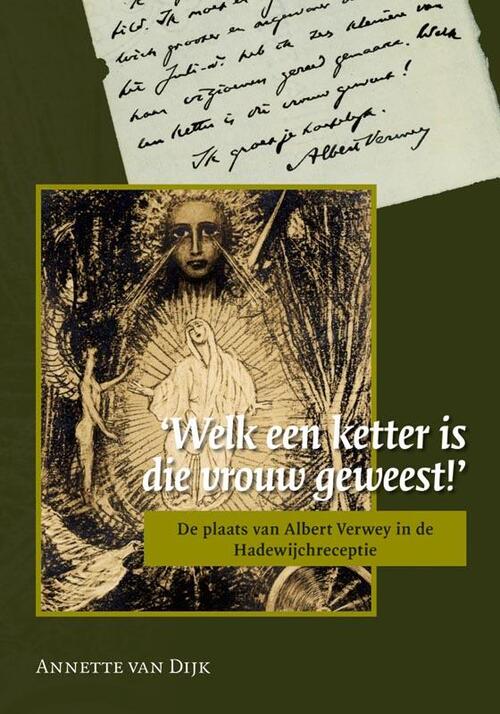 tild. Ik moet er
wich grooter en ongewoner
het Juli-nr. heb ik zes kleinere van
haar vizioenen gereed gemaakt. Welk
een ketter is die vrouw geweest!
Ik groet je hartelijk.
Albert Verwey
‘Welk een ketter is
die vrouw geweest!’
De plaats van Albert Verwey in de
Hadewijchreceptie
Annette van Dijk